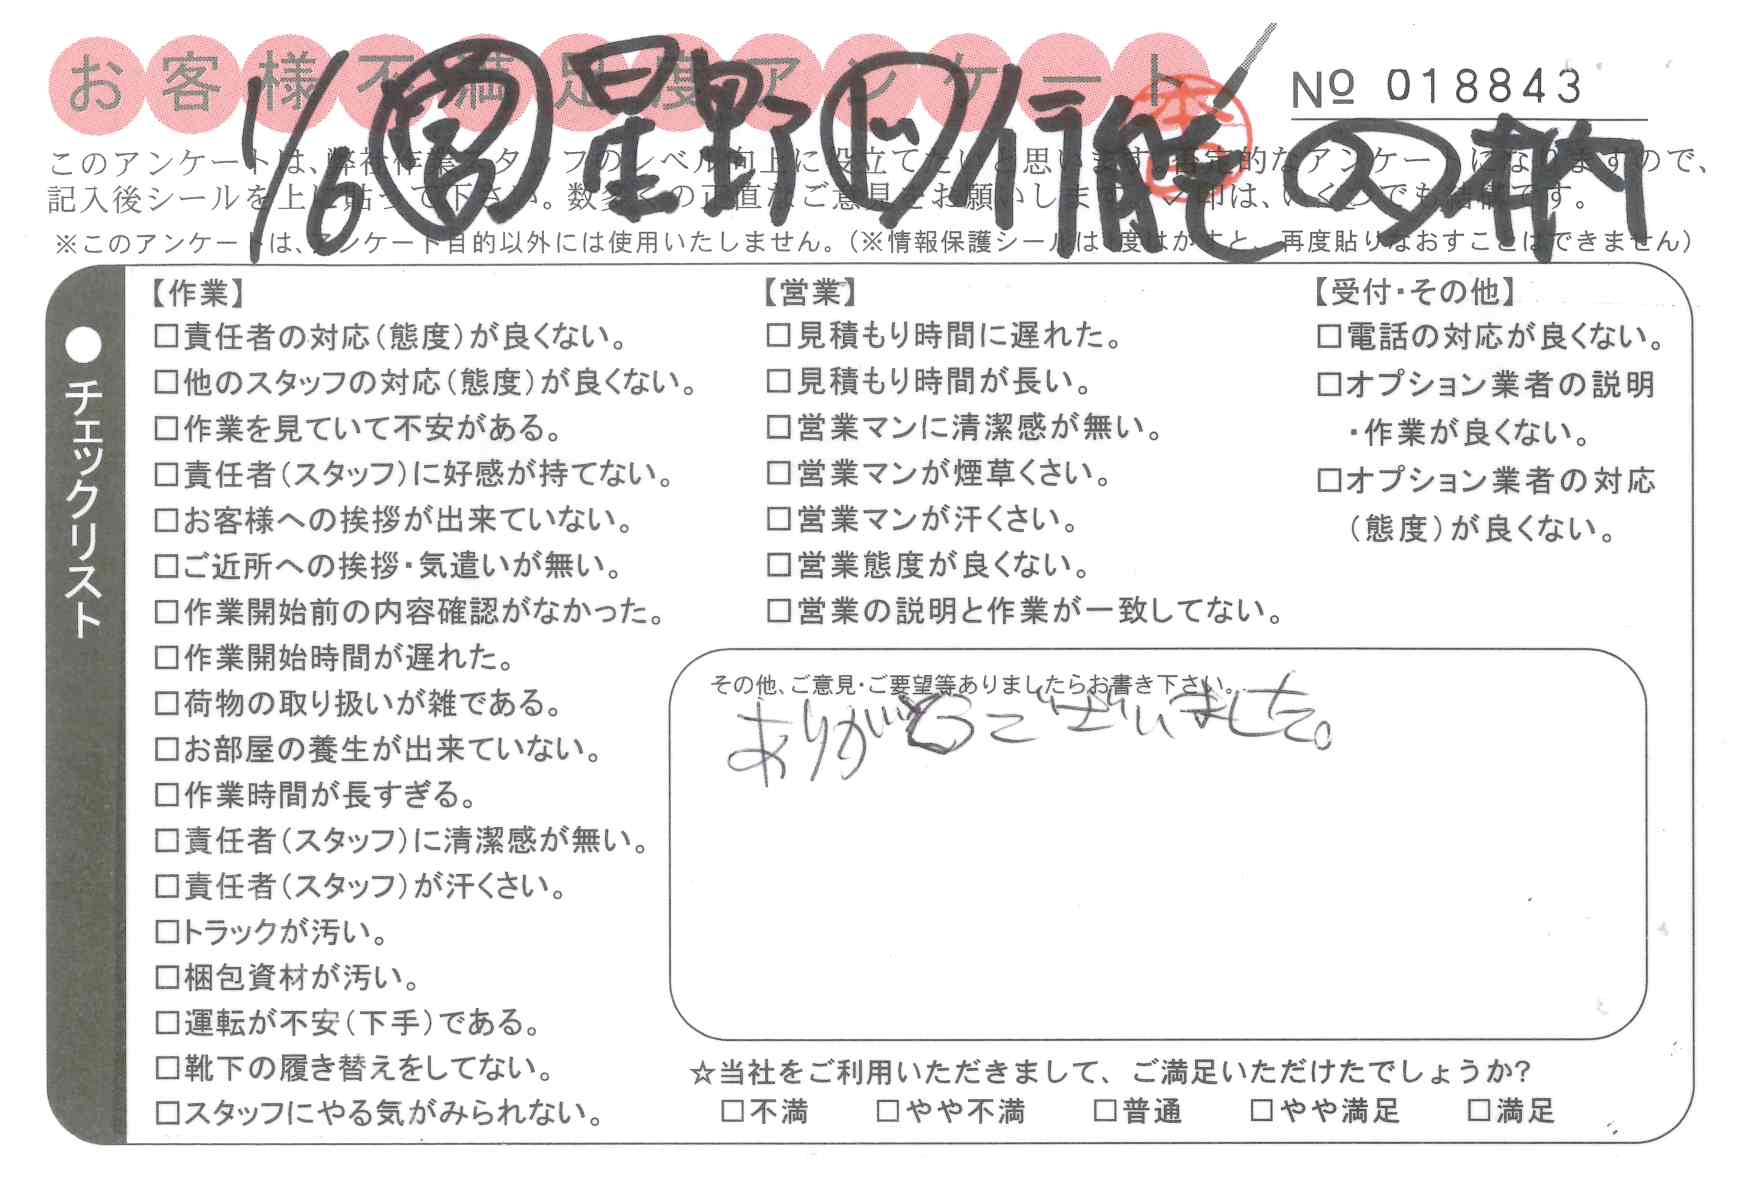 お客様不満足度アンケート
No 018843
1/6 営 星野 ド 作能 ス 木村
このアンケートは、弊社作業スタッフのレベル向上に役立てたいと思います。否定的なアンケートになりますので、
記入後シールを上に貼って下さい。数多くの正直なご意見をお願いします。レ印は、いくつでも結構です。
※このアンケートは、アンケート目的以外には使用いたしません。(※情報保護シールは1度はがすと、再度貼りなおすことはできません)
●チェックリスト
【作業】
□責任者の対応(態度)が良くない。
□他のスタッフの対応(態度)が良くない。
□作業を見ていて不安がある。
□責任者(スタッフ)に好感が持てない。
□お客様への挨拶が出来ていない。
□ご近所への挨拶・気遣いが無い。
□作業開始前の内容確認がなかった。
□作業開始時間が遅れた。
□荷物の取り扱いが雑である。
□お部屋の養生が出来ていない。
□作業時間が長すぎる。
□責任者(スタッフ)に清潔感が無い。
□責任者(スタッフ)が汗くさい。
□トラックが汚い。
□梱包資材が汚い。
□運転が不安(下手)である。
□靴下の履き替えをしてない。
□スタッフにやる気がみられない。
【営業】
□見積もり時間に遅れた。
□見積もり時間が長い。
□営業マンに清潔感が無い。
□営業マンが煙草くさい。
□営業マンが汗くさい。
□営業態度が良くない。
□営業の説明と作業が一致してない。
【受付・その他】
□電話の対応が良くない。
□オプション業者の説明
・作業が良くない。
□オプション業者の対応
(態度)が良くない。
その他、ご意見・ご要望等ありましたらお書き下さい。
ありがとうございました。
☆当社をご利用いただきまして、ご満足いただけたでしょうか?
□不満 □やや不満 □普通 □やや満足 □満足